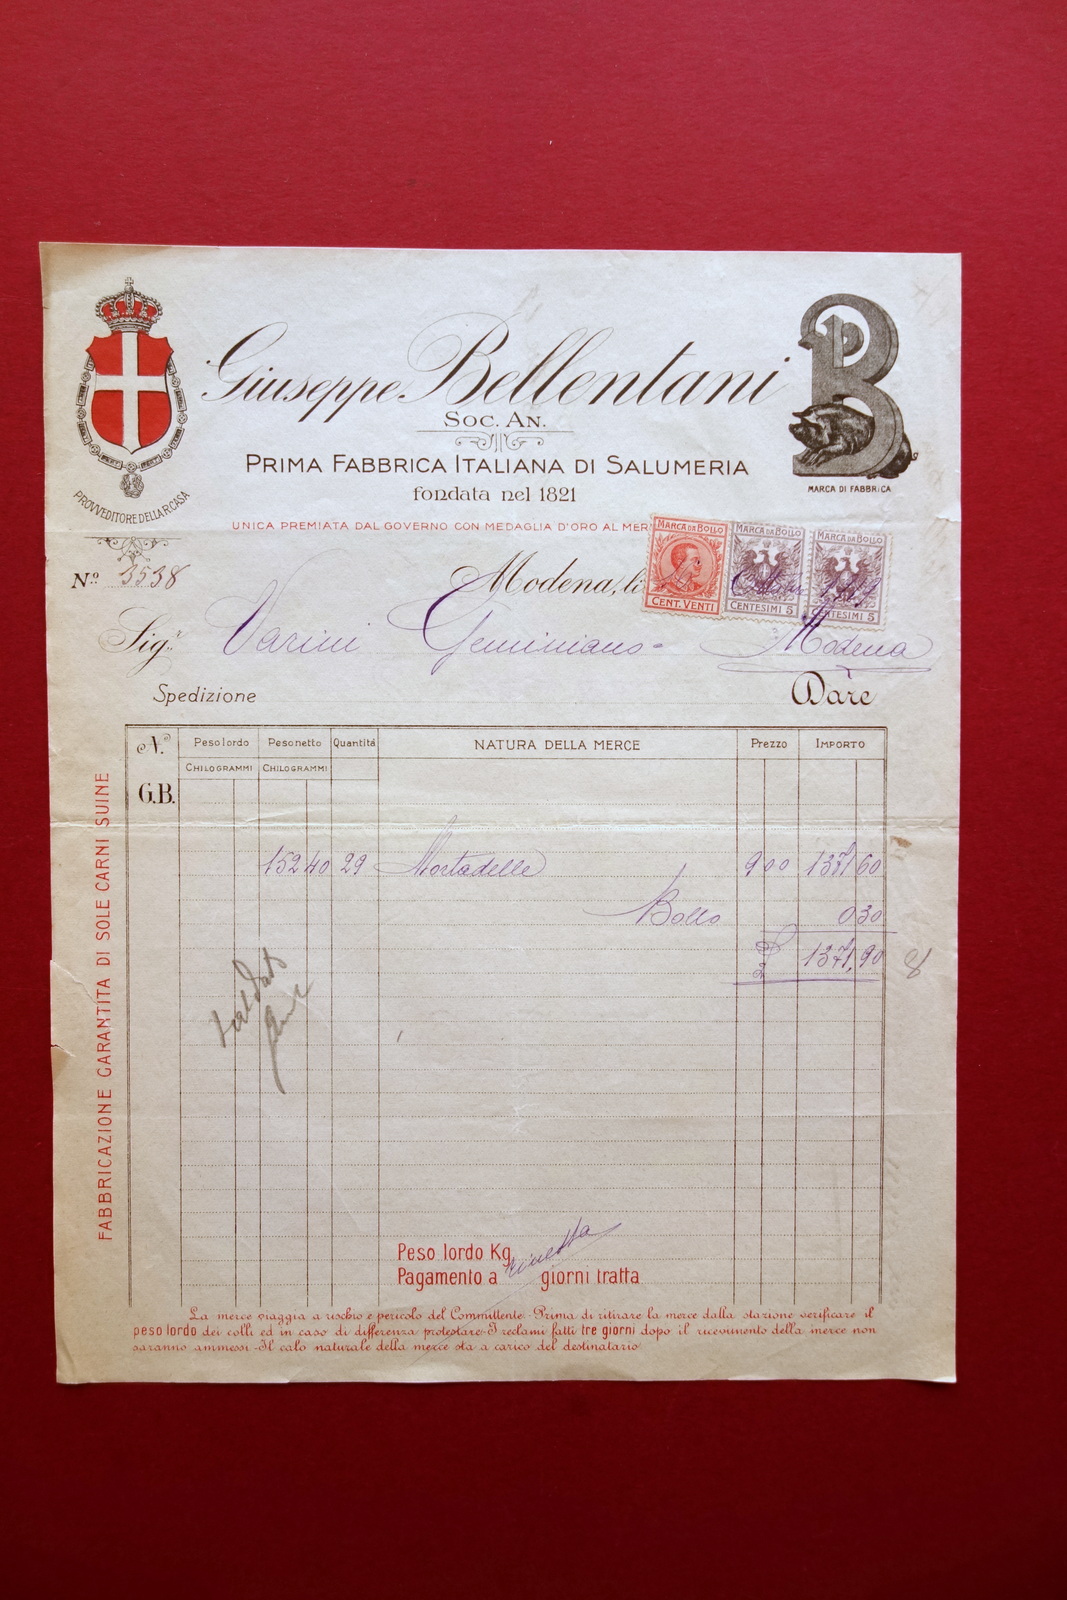 Giuseppe Bellentani
Soc. An.
PRIMA FABBRICA ITALIANA DI SALUMERIA
fondata nel 1821
UNICA PREMIATA DAL GOVERNO CON MEDAGLIA D'ORO AL MER
PROVVEDITORE DELLA R. CASA
B
MARCA DI FABBRICA
MARCA DA BOLLO MARCA DA BOLLO MARCA DA BOLLO
CENT. VENTI CENTESIMI 5 CENTESIMI 5
Nº 3538 Modena, li
Sig.r Varini Geminiano = Modena
Spedizione Dare
N.º Peso lordo Peso netto Quantità NATURA DELLA MERCE Prezzo IMPORTO
CHILOGRAMMI CHILOGRAMMI
G.B.
152 40 29 Mortadelle 9 00 1371 60
Bollo 0 30
1371,90
Saldato
FABBRICAZIONE GARANTITA DI SOLE CARNI SUINE
Peso lordo Kg.
Pagamento a giorni tratta
La merce viaggia a rischio e pericolo del Committente - Prima di ritirare la merce dalla stazione verificare il
peso lordo dei colli ed in caso di differenza protestare - I reclami fatti tre giorni dopo il ricevimento della merce non
saranno ammessi - Il calo naturale della merce sta a carico del destinatario